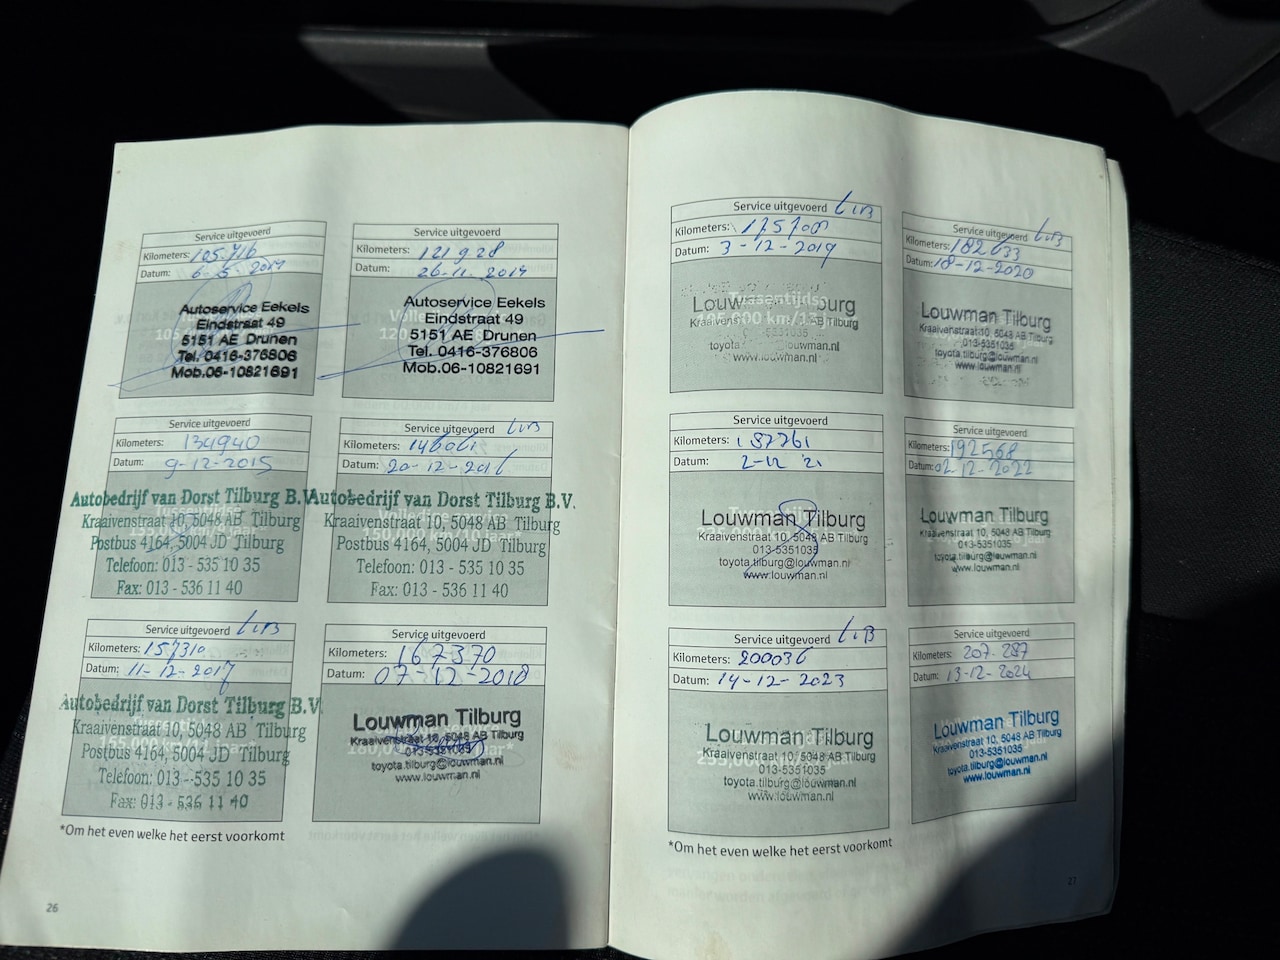 Service uitgevoerd
Kilometers: 105.716
Datum: 6-5-2014
Autoservice Eekels
Eindstraat 49
5151 AE Drunen
Tel. 0416-376806
Mob.06-10821691
Service uitgevoerd
Kilometers: 121928
Datum: 26-11-2014
Autoservice Eekels
Eindstraat 49
5151 AE Drunen
Tel. 0416-376806
Mob.06-10821691
Service uitgevoerd
Kilometers: 134940
Datum: 9-12-2015
Autobedrijf van Dorst Tilburg B.V.
Kraaivenstraat 10, 5048 AB Tilburg
Postbus 4164, 5004 JD Tilburg
Telefoon: 013 - 535 10 35
Fax: 013 - 536 11 40
Service uitgevoerd
Kilometers:
Datum: 20-12-2016
Autobedrijf van Dorst Tilburg B.V.
Kraaivenstraat 10, 5048 AB Tilburg
Postbus 4164, 5004 JD Tilburg
Telefoon: 013 - 535 10 35
Fax: 013 - 536 11 40
Service uitgevoerd
Kilometers: 157310
Datum: 11-12-2017
Autobedrijf van Dorst Tilburg B.V.
Kraaivenstraat 10, 5048 AB Tilburg
Postbus 4164, 5004 JD Tilburg
Telefoon: 013 - 535 10 35
Fax: 013 - 536 11 40
Service uitgevoerd
Kilometers: 167370
Datum: 07-12-2018
Louwman Tilburg
Kraaivenstraat 10, 5048 AB Tilburg
013-5351035
toyota.tilburg@louwman.nl
www.louwman.nl
*Om het even welke het eerst voorkomt
26
Service uitgevoerd
Kilometers:
Datum: 3-12-2019
Tussentijdse
Louwman Tilburg
Kraaivenstraat 10, 5048 AB Tilburg
013-5351035
www.louwman.nl
Service uitgevoerd
Kilometers: 182633
Datum: 18-12-2020
Louwman Tilburg
Kraaivenstraat 10, 5048 AB Tilburg
013-5351035
toyota.tilburg@louwman.nl
www.louwman.nl
Service uitgevoerd
Kilometers: 187761
Datum: 2-12 '21
Louwman Tilburg
Kraaivenstraat 10, 5048 AB Tilburg
013-5351035
toyota.tilburg@louwman.nl
www.louwman.nl
Service uitgevoerd
Kilometers: 192568
Datum: 02-12-2022
Louwman Tilburg
Kraaivenstraat 10, 5048 AB Tilburg
013-5351035
toyota.tilburg@louwman.nl
www.louwman.nl
Service uitgevoerd
Kilometers: 200036
Datum: 14-12-2023
Louwman Tilburg
Kraaivenstraat 10, 5048 AB Tilburg
013-5351035
toyota.tilburg@louwman.nl
www.louwman.nl
Service uitgevoerd
Kilometers: 207.287
Datum: 13-12-2024
Louwman Tilburg
Kraaivenstraat 10, 5048 AB Tilburg
013-5351035
toyota.tilburg@louwman.nl
www.louwman.nl
*Om het even welke het eerst voorkomt
27